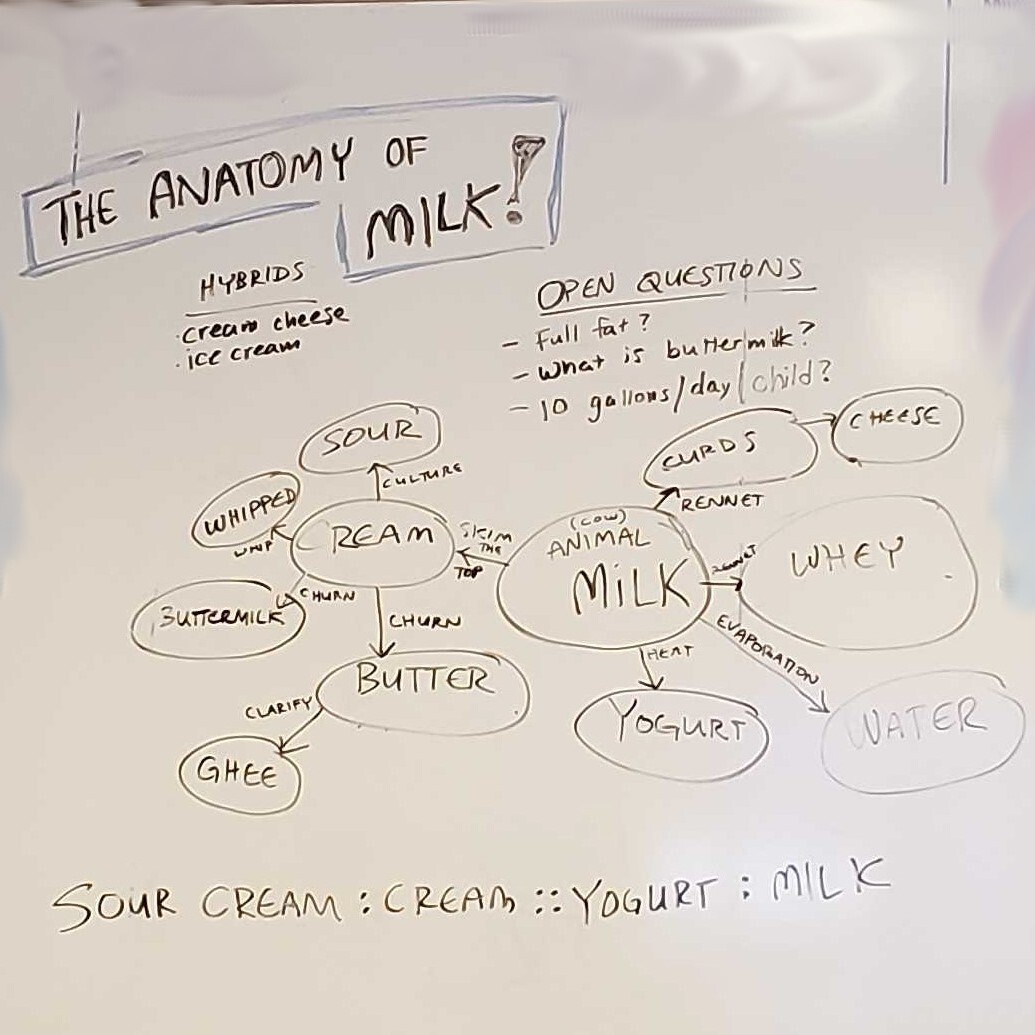 THE ANATOMY OF
MILK!
HYBRIDS
· cream cheese
· ice cream
OPEN QUESTIONS
- Full fat?
- What is buttermilk?
- 10 gallons/day/child?
SOUR
CULTURE
WHIPPED
WHIP
CREAM
SKIM
THE
TOP
CHURN
BUTTERMILK
CHURN
BUTTER
CLARIFY
GHEE
(COW)
ANIMAL
MILK
CURDS
CHEESE
RENNET
RENNET
WHEY
EVAPORATION
WATER
HEAT
YOGURT
SOUR CREAM : CREAM :: YOGURT : MILK